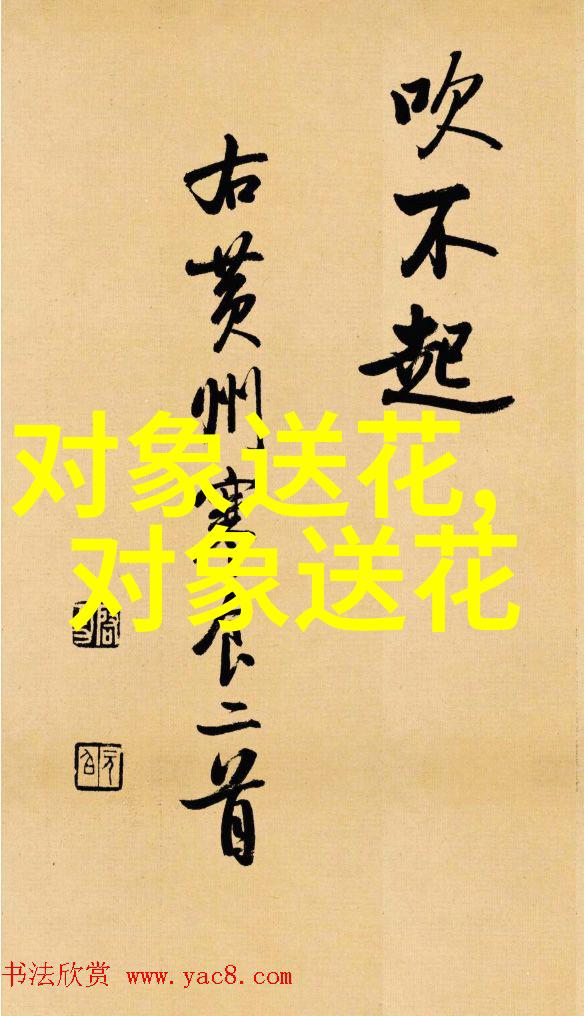 吹不起
右黄州寒食二首
对象送花，
对象送花
书法欣赏 www.yac8.com